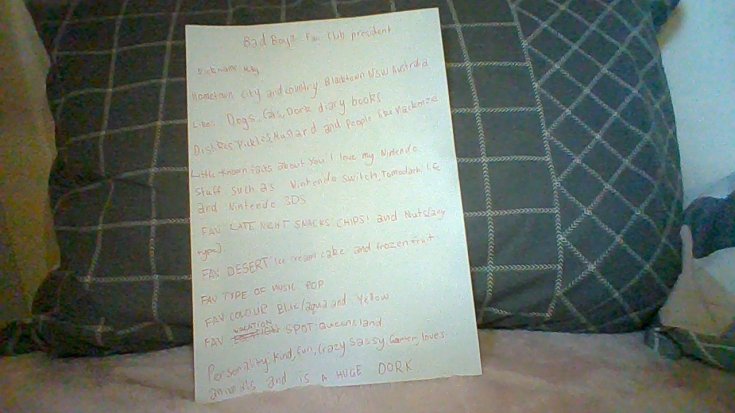 Bad Boyz Fan Club president
Nickname:
Hometown City and country Blacktown NSW Australia
Likes: Dogs, Cats, Dork diary books
Dislikes, Pickles, Mustard and People like Mackenzie
Little known facts about you I love my Nintendo
stuff such as Nintendo switch, Tomodachi life
and Nintendo 3DS
FAV LATE NIGHT SNACKS CHIPS! and Nuts (any
type)
FAV DESERT Ice cream cake and frozen fruit
FAV TYPE OF MUSIC POP
FAV COLOUR Blue/aqua and Yellow
FAV VACATION SPOT: Queensland
Personality: Kind, fun, crazy sassy, Gamer, loves
animals and is A HUGE DORK